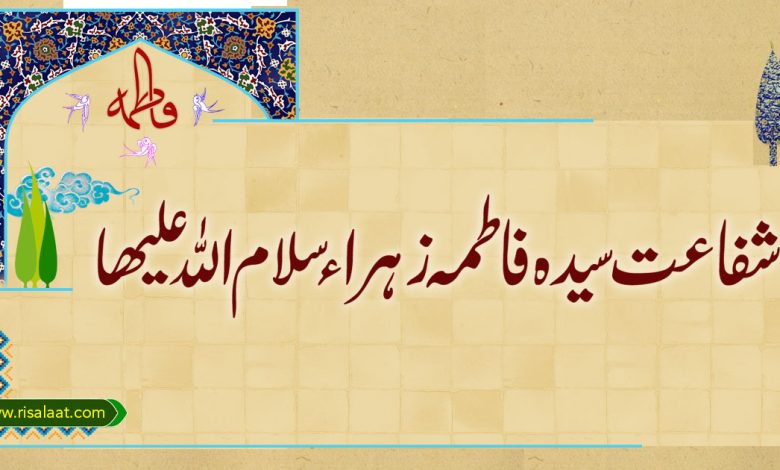 فاطمہ
شفاعت سیدہ فاطمہ زہراء سلام اللہ علیھا
www.risalaat.com